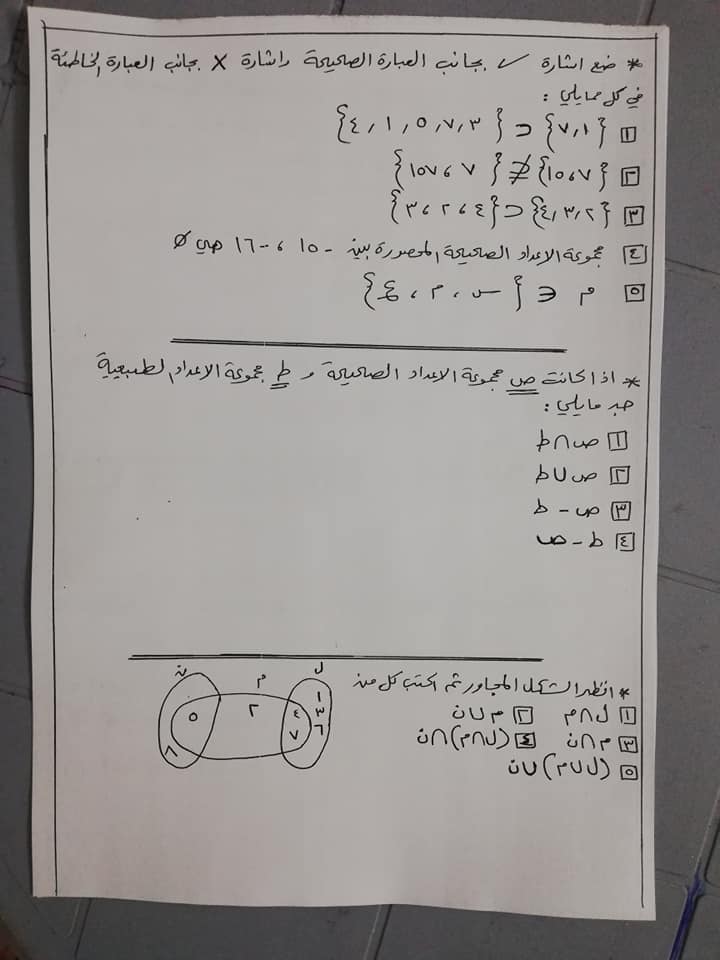 * ضع اشارة ✓ بجانب العبارة الصحيحة واشارة X بجانب العبارة الخاطئة
في كل مما يلي :
١ {٧,١} ⊃ {٤,١,٥,٧,٣}
٢ {١٥،٧} ⊅ {١٥٧،٧}
٣ {٤,٣,٢} ⊃ {٣،٢،٤}
٤ مجموعة الاعداد الصحيحة المحصورة بين -١٥ ، -١٦ هي ∅
٥ م ∋ {س ، م ، ع}
* اذا كانت ص مجموعة الاعداد الصحيحة و ط مجموعة الاعداد الطبيعية
جد مايلي :
١ ص ∩ ط
٢ ص ∪ ط
٣ ص - ط
٤ ط - ص
* انظر الشكل المجاور ثم اكتب كل من
١ ل ∩ م ٢ م ∪ ن
٣ م ∩ ن ٤ (ل ∩ م) ∩ ن
٥ (ل ∪ م) ∪ ن
ل م ن
١
٣ ٤ ٢ ٥
٦ ٧ ٨